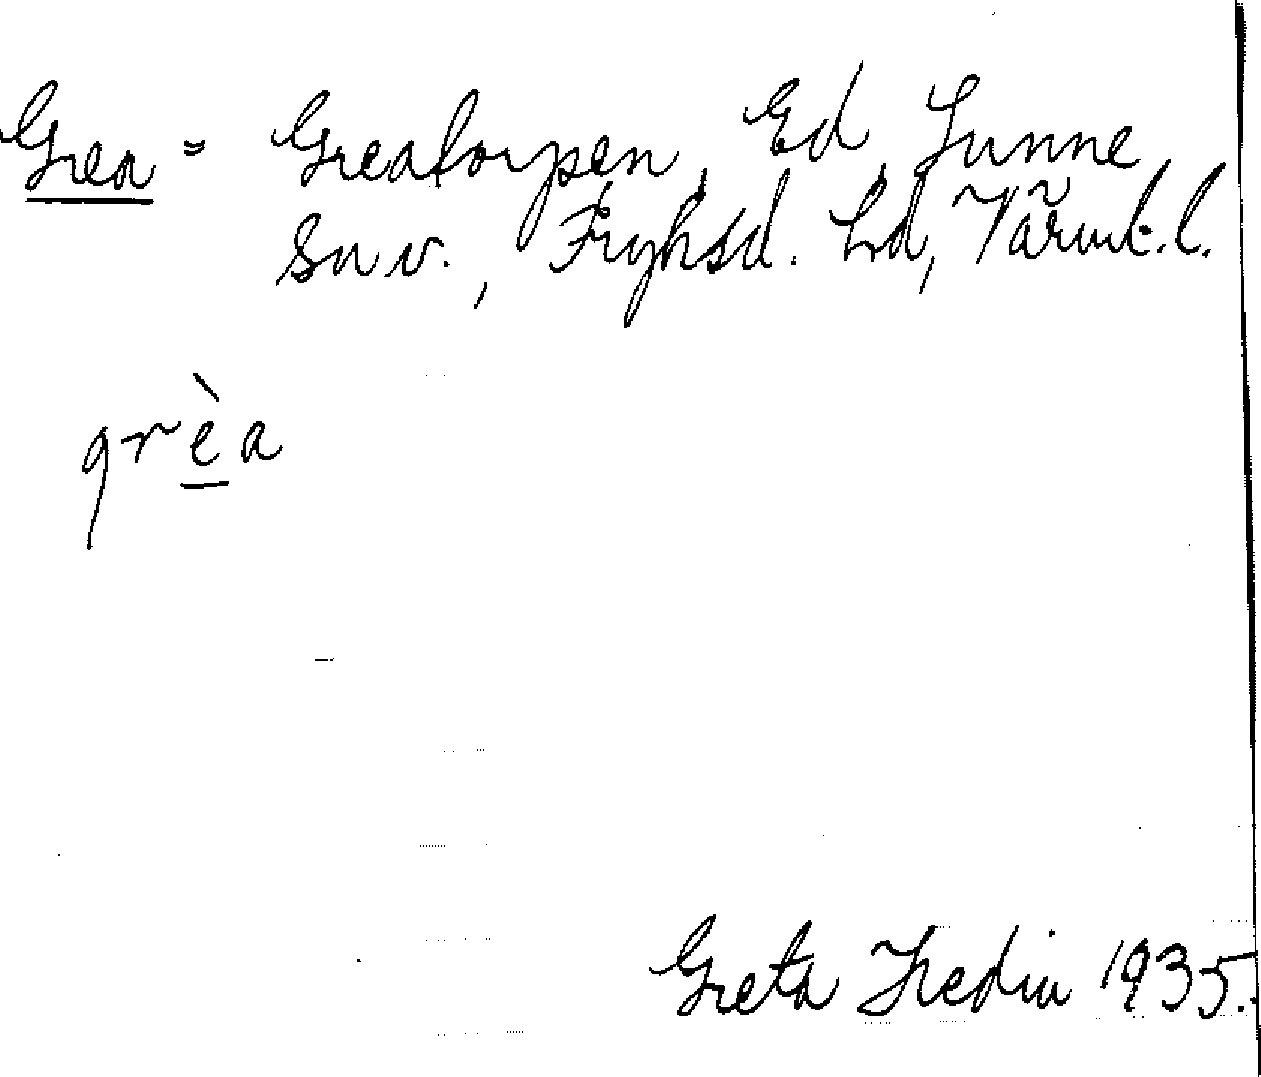 Grea = Greatorpen, Ed, Sunne
Sn v., Fryksd. hd, Värml. l.
grèa
Greta Hedin 1935.